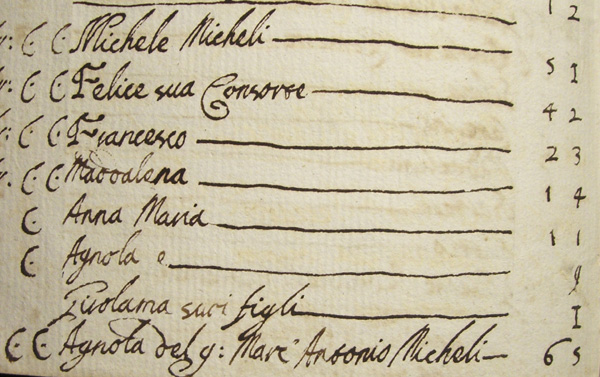 1 2
C C Michele Micheli 5 1
C C Felice sua Consorte 4 2
C C Francesco 2 3
C C Maddalena 1 4
C Anna Maria 1 1
C Agnola e 9
Girolama suoi figli 1
C C Agnola del q: Marc' Antonio Micheli 6 5